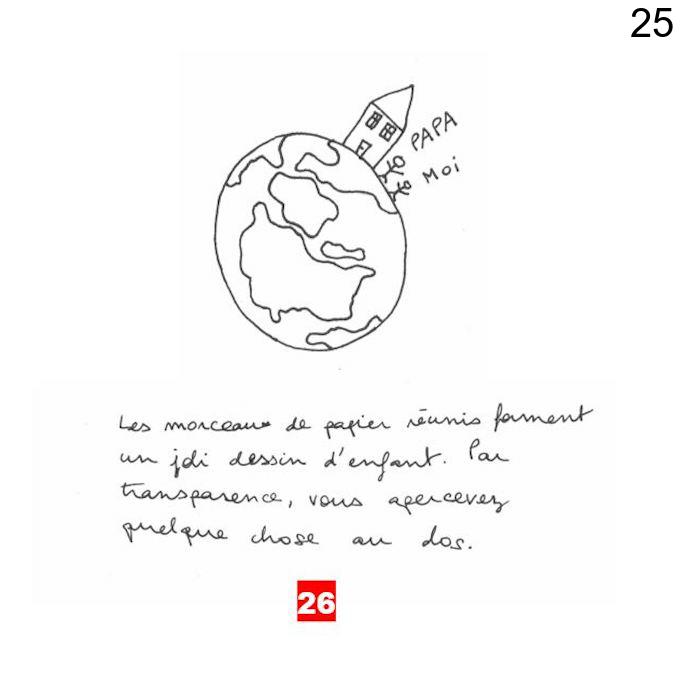 25
PAPA
Moi
Les morceaux de papier réunis forment
un joli dessin d'enfant. Par
transparence, vous apercevez
quelque chose au dos.
26